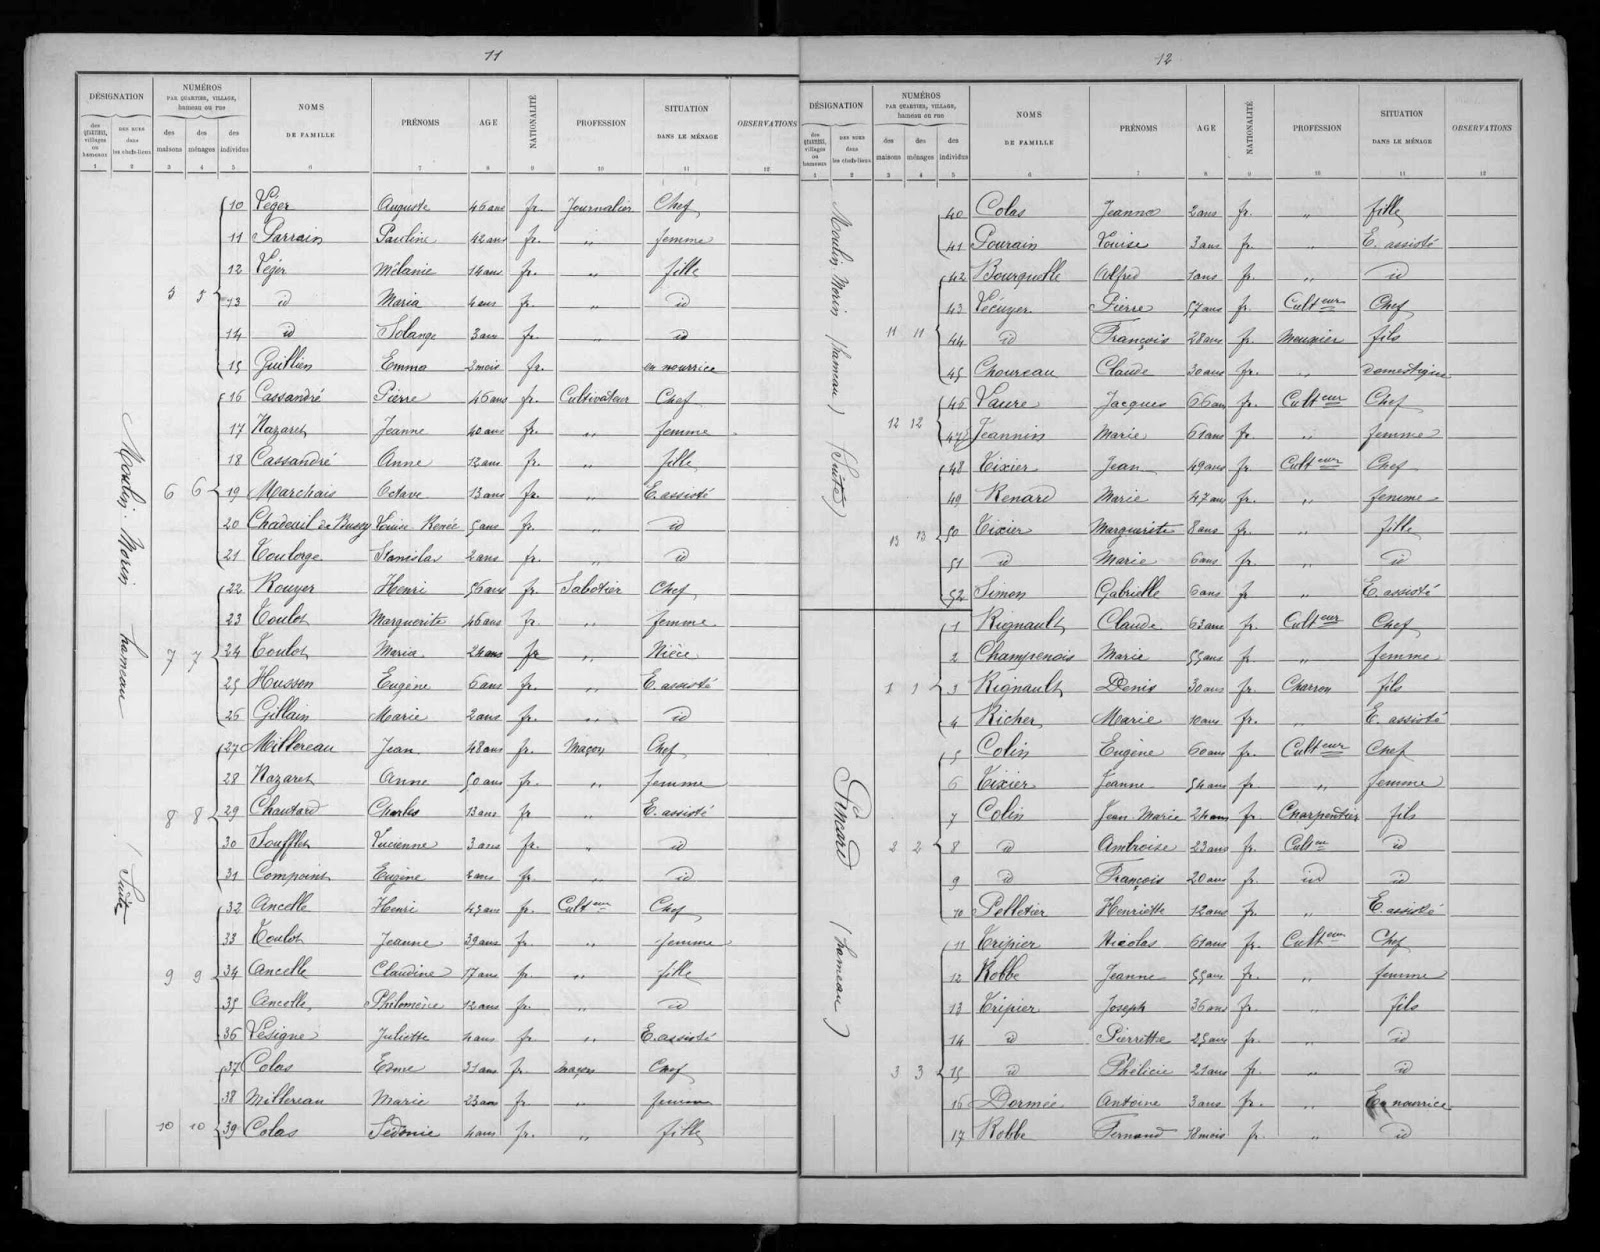 11
DÉSIGNATION NUMÉROS PAR QUARTIER, VILLAGE, hameau ou rue NOMS DE FAMILLE PRÉNOMS AGE NATIONALITÉ PROFESSION SITUATION DANS LE MÉNAGE OBSERVATIONS
des QUARTIERS, villages ou hameaux DES RUES dans les chefs-lieux des maisons des ménages des individus
1 2 3 4 5 6 7 8 9 10 11 12
Moulin-Morin hameau (Suite)
10 Léger Auguste 46 ans fr. Journalier Chef
11 Sarrain Pauline 42 ans fr. " femme
12 Léger Mélanie 14 ans fr. " fille
5 5 13 id Maria 4 ans fr. " id
14 id Solange 3 ans fr. " id
15 Guillien Emma 3 mois fr. en nourrice
16 Cassandré Pierre 46 ans fr. Cultivateur Chef
17 Nazaret Jeanne 40 ans fr. " femme
18 Cassandré Anne 12 ans fr. " fille
6 6 19 Marchais Octave 13 ans fr. " E. assisté
20 Chadeuil de Bussy Louise Renée 5 ans fr. " id
21 Toulorge Stanislas 2 ans fr. " id
22 Rouyer Henri 56 ans fr. Sabotier Chef
23 Toulot Marguerite 46 ans fr. " femme
7 7 24 Toulot Maria 24 ans fr " Nièce
25 Husson Eugène 6 ans fr. " E. assisté
26 Gillain Marie 2 ans fr. " id
27 Millereau Jean 48 ans fr. Maçon Chef
28 Nazaret Anne 50 ans fr. " femme
8 8 29 Chautard Charles 13 ans fr " E. assisté
30 Soufflet Lucienne 3 ans fr. " id
31 Compoint Eugène 2 ans fr. " id
32 Ancelle Henri 43 ans fr. Culteur Chef
33 Toulot Jeanne 39 ans fr. " femme
9 9 34 Ancelle Claudine 17 ans fr. " fille
35 Ancelle Philomène 12 ans fr. " id
36 Lesigne Juliette 4 ans fr. " E. assisté
37 Colas Edme 31 ans fr. maçon Chef
38 Millereau Marie 23 ans fr. " femme
10 10 39 Colas Sédonie 4 ans fr. " fille
12
DÉSIGNATION NUMÉROS PAR QUARTIER, VILLAGE, hameau ou rue NOMS DE FAMILLE PRÉNOMS AGE NATIONALITÉ PROFESSION SITUATION DANS LE MÉNAGE OBSERVATIONS
des QUARTIERS, villages ou hameaux DES RUES dans les chefs-lieux des maisons des ménages des individus
1 2 3 4 5 6 7 8 9 10 11 12
Moulin Morin (hameau) (Suite)
40 Colas Jeanne 2 ans fr. " fille
41 Pourain Louise 3 ans fr. " E. assisté
42 Bourguelle Alfred 1 ans fr. " id
43 Lécuyer Pierre 57 ans fr Culteur Chef
11 11 44 id François 28 ans fr. Meunier fils
45 Choureau Claude 30 ans fr. " domestique
46 Laure Jacques 66 ans fr. Culteur Chef
12 12 47 Jeannin Marie 61 ans fr. " femme
48 Tixier Jean 49 ans fr. Culteur Chef
49 Renard Marie 47 ans fr. " femme
13 13 50 Tixier Marguerite 8 ans fr. " fille
51 id Marie 6 ans fr. " id
52 Simon Gabrielle 6 ans fr " E. assisté
(hameau)
1 Rignault Claude 63 ans fr. Culteur Chef
2 Champenois Marie 55 ans fr " femme
1 1 3 Rignault Denis 30 ans fr Charron fils
4 Richer Marie 10 ans fr. " E. assisté
5 Colin Eugène 60 ans fr. Culteur Chef
6 Tixier Jeanne 54 ans fr. " femme
7 Colin Jean Marie 24 ans fr. Charpentier fils
2 2 8 id Ambroise 23 ans fr. Culteur id
9 id François 20 ans fr. id id
10 Pelletier Henriette 12 ans fr. " E. assisté
11 Tripier Nicolas 61 ans fr. Culteur Chef
12 Robbe Jeanne 55 ans fr. " femme
13 Tripier Joseph 36 ans fr. fils
14 id Pierrette 25 ans fr. " id
3 3 15 id Phélicie 21 ans fr. " id
16 Dormée Antoine 3 ans fr. " En nourrice
17 Robbe Fernand 18 mois fr. " id